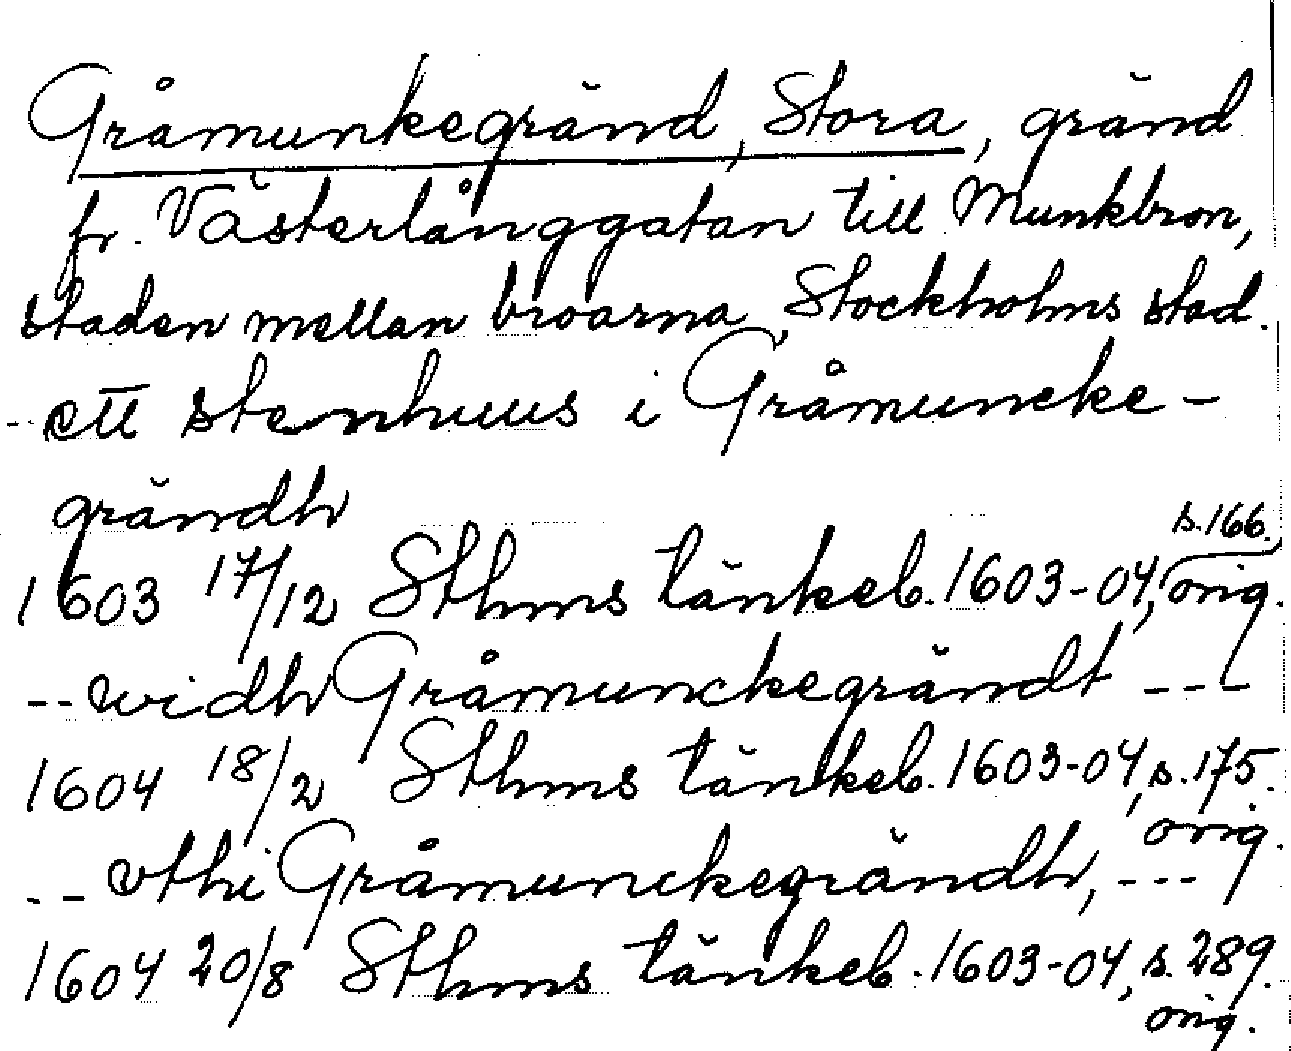 Gråmunkegränd, Stora, gränd
fr. Västerlånggatan till Munkbron,
staden mellan broarna, Stockholms stad.
-- ett stenhuus i Gråmuncke-
grändh
s. 166.
1603 17/12 Sthms tänkeb. 1603-04, orig.
-- widh Gråmunckegrändt ---
1604 18/2 Sthms tänkeb. 1603-04, s. 175.
orig.
-- vthi Gråmunckegrändh, ---
1604 20/8 Sthms tänkeb. 1603-04, s. 289.
orig.